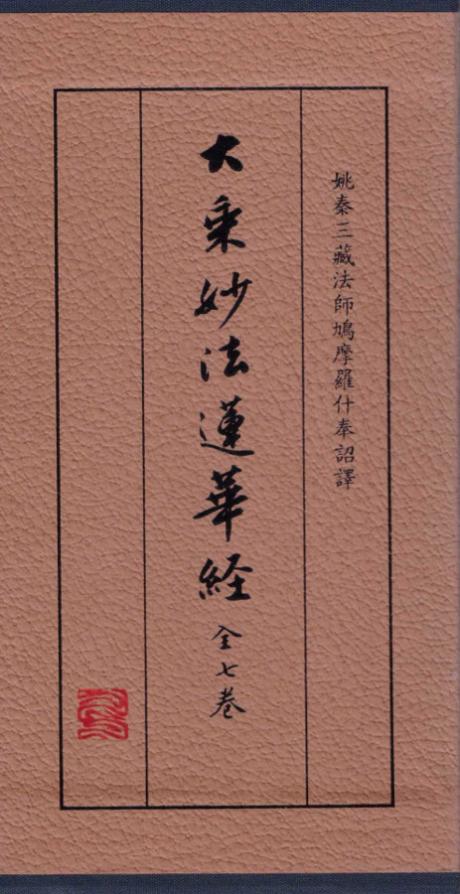 姚秦三藏法師鳩摩羅什奉詔譯
大乘妙法蓮華経 全七卷